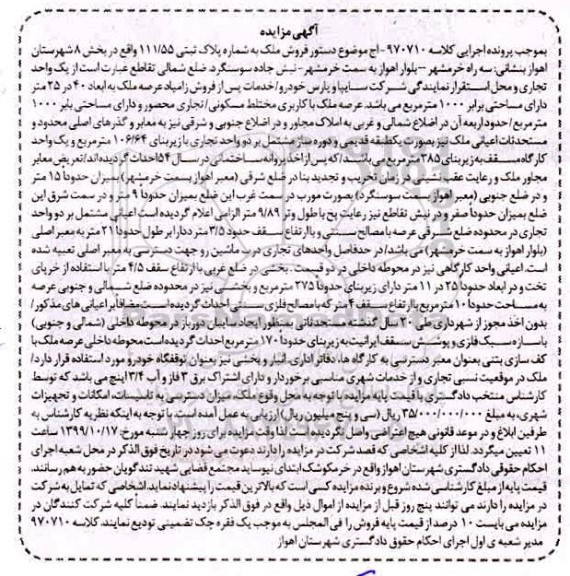 آگهی مزایده
بموجب پرونده اجرایی کلاسه ۹۷۰۷۱۰-اج موضوع دستور فروش ملک به شماره پلاک ثبتی ۱۱۱/۵۵ واقع در بخش ۸ شهرستان
اهواز بنشانی: سه راه خرمشهر --بلوار اهواز به سمت خرمشهر-نبش جاده سوسنگرد. ضلع شمالی تقاطع عبارت است از یک واحد
تجاری و محل استقرار نمایندگی شرکت سایپا و پارس خودرو/خدمات پس از فروش زامیاد عرصه ملک به ابعاد ۴۰ در ۲۵ متر
دارای مساحتی برابر ۱۰۰۰ مترمربع می باشد. عرصه ملک با کاربری مختلط مسکونی/تجاری محصور و دارای مساحتی بایر ۱۰۰۰
مترمربع/حدود اربعه آن در اضلاع شمالی و غربی به املاک مجاور و در اضلاع جنوبی و شرقی نیز به معابر و گذرهای اصلی محدود و
مستحدثات اعیانی ملک نیز بصورت یکطبقه قدیمی و دوره ساز مشتمل بر دو واحد تجاری با زیربنای ۱۰۶/۶۴ مترمربع و یک واحد
کارگاه مسقف به زیربنای ۳۸۵ مترمربع می باشند/که پس از اخذ پروانه ساختمانی در سال ۵۴ احداث گردیده اند/تعریض معابر
مجاور ملک و رعایت عقب نشینی در زمان تخریب و تجدید بنا در ضلع شرقی (معبر اهواز بسمت خرمشهر) بمیزان حدوداً ۱۵ متر
و در ضلع جنوبی (معبر اهواز بسمت سوسنگرد) بصورت مورب در سمت غرب این ضلع بمیزان حدوداً ۹ متر و در سمت شرق این
ضلع بمیزان حدوداً صفر و در نبش تقاطع نیز رعایت پخ با طول وتر ۹/۸۹ متر الزامی اعلام گردیده است اعیانی مشتمل بر دو واحد
تجاری در محدوده ضلع شرقی عرصه با مصالح سنتی و با ارتفاع سقف حدود ۳/۵ متر ددارابر طول حدوداً ۲۱ متر به معبر اصلی
(بلوار اهواز به سمت خرمشهر) می باشد/در حدفاصل واحدهای تجاری درب ماشین رو جهت دسترسی به معابر اصلی تعبیه شده
است. اعیانی واحد کارگاهی نیز در محوطه داخلی در دو قسمت. بخشی در ضلع غربی با ارتفاع سقف ۴/۵ متر با استفاده از خرپای
تخت و در ابعاد حدوداً ۲۵ در ۱۱ متر دارای زیربنای حدوداً ۲۷۵ مترمربع و بخشی نیز در محدوده ضلع شمالی و جنوبی عرصه
به مساحت حدوداً ۱۰ مترمربع با ارتفاع سقف ۴ متر که با مصالح فلزی سنتی احداث گردیده است مضافاً بر اعیانی های مذکور/
بدون اخذ مجوز از شهرداری طی ۲۰ سال گذشته مستحدثاتی بمنظور ایجاد سایبان دورباز در محوطه داخلی (شمالی و جنوبی)
با سازه سبک فلزی و پوشش سقف ایرانیت به زیربنای حدوداً ۱۷۰ مترمربع احداث گردیده است محوطه داخلی عرصه ملک با
کف سازی بتنی بعنوان معبر دسترسی به کارگاه ها، دفاتر اداری انبار و بخشی نیز بعنوان توقفگاه خودرو مورد استفاده قرار دارد/
ملک در موقعیت نسبی تجاری و از خدمات شهری مناسبی برخوردار و دارای اشتراک برق ۳ فاز و آب ۳/۴ اینچ می باشد که توسط
کارشناس منتخب دادگستری با قیمت پایه مزایده با توجه به محل وقوع ملک، میزان دسترسی به تاسیسات، امکانات و تجهیزات
شهری، به مبلغ ۳۵/۰۰۰/۰۰۰/۰۰۰ ریال (سی و پنج میلیون ریال) ارزیابی به عمل آمده است. با توجه به اینکه نظریه کارشناس به
طرفین ابلاغ و در موعد قانونی هیچ اعتراضی واصل نگردیده است لذا وقت مزایده برای روز چهار شنبه مورخ: ۱۳۹۹/۱۰/۱۷ ساعت
۱۱ تعیین میگردد. لذا از کلیه اشخاصی که قصد شرکت در مزایده را دارند دعوت می شود در تاریخ فوق الذکر در محل شعبه اجرای
احکام حقوقی دادگستری شهرستان اهواز واقع در خرمکوشک ابتدای نیوساید مجتمع قضایی شهید تندگویان حضور به هم رسانند.
قیمت پایه از مبلغ کارشناسی شده شروع و برنده مزایده کسی است که بالاترین قیمت را پیشنهاد نماید اشخاصی که تمایل به شرکت
در مزایده را دارند می توانند پنج روز قبل از مزایده از اموال ذیل واقع در فوق الذکر بازدید نمایند. ضمناً کلیه شرکت کنندگان در
مزایده می بایست ۱۰ درصد از قیمت پایه فروش را فی المجلس به موجب یک فقره چک تضمینی تودیع نمایند. کلاسه ۹۷۰۷۱۰
مدیر شعبه ی اول اجرای احکام حقوق دادگستری شهرستان اهواز